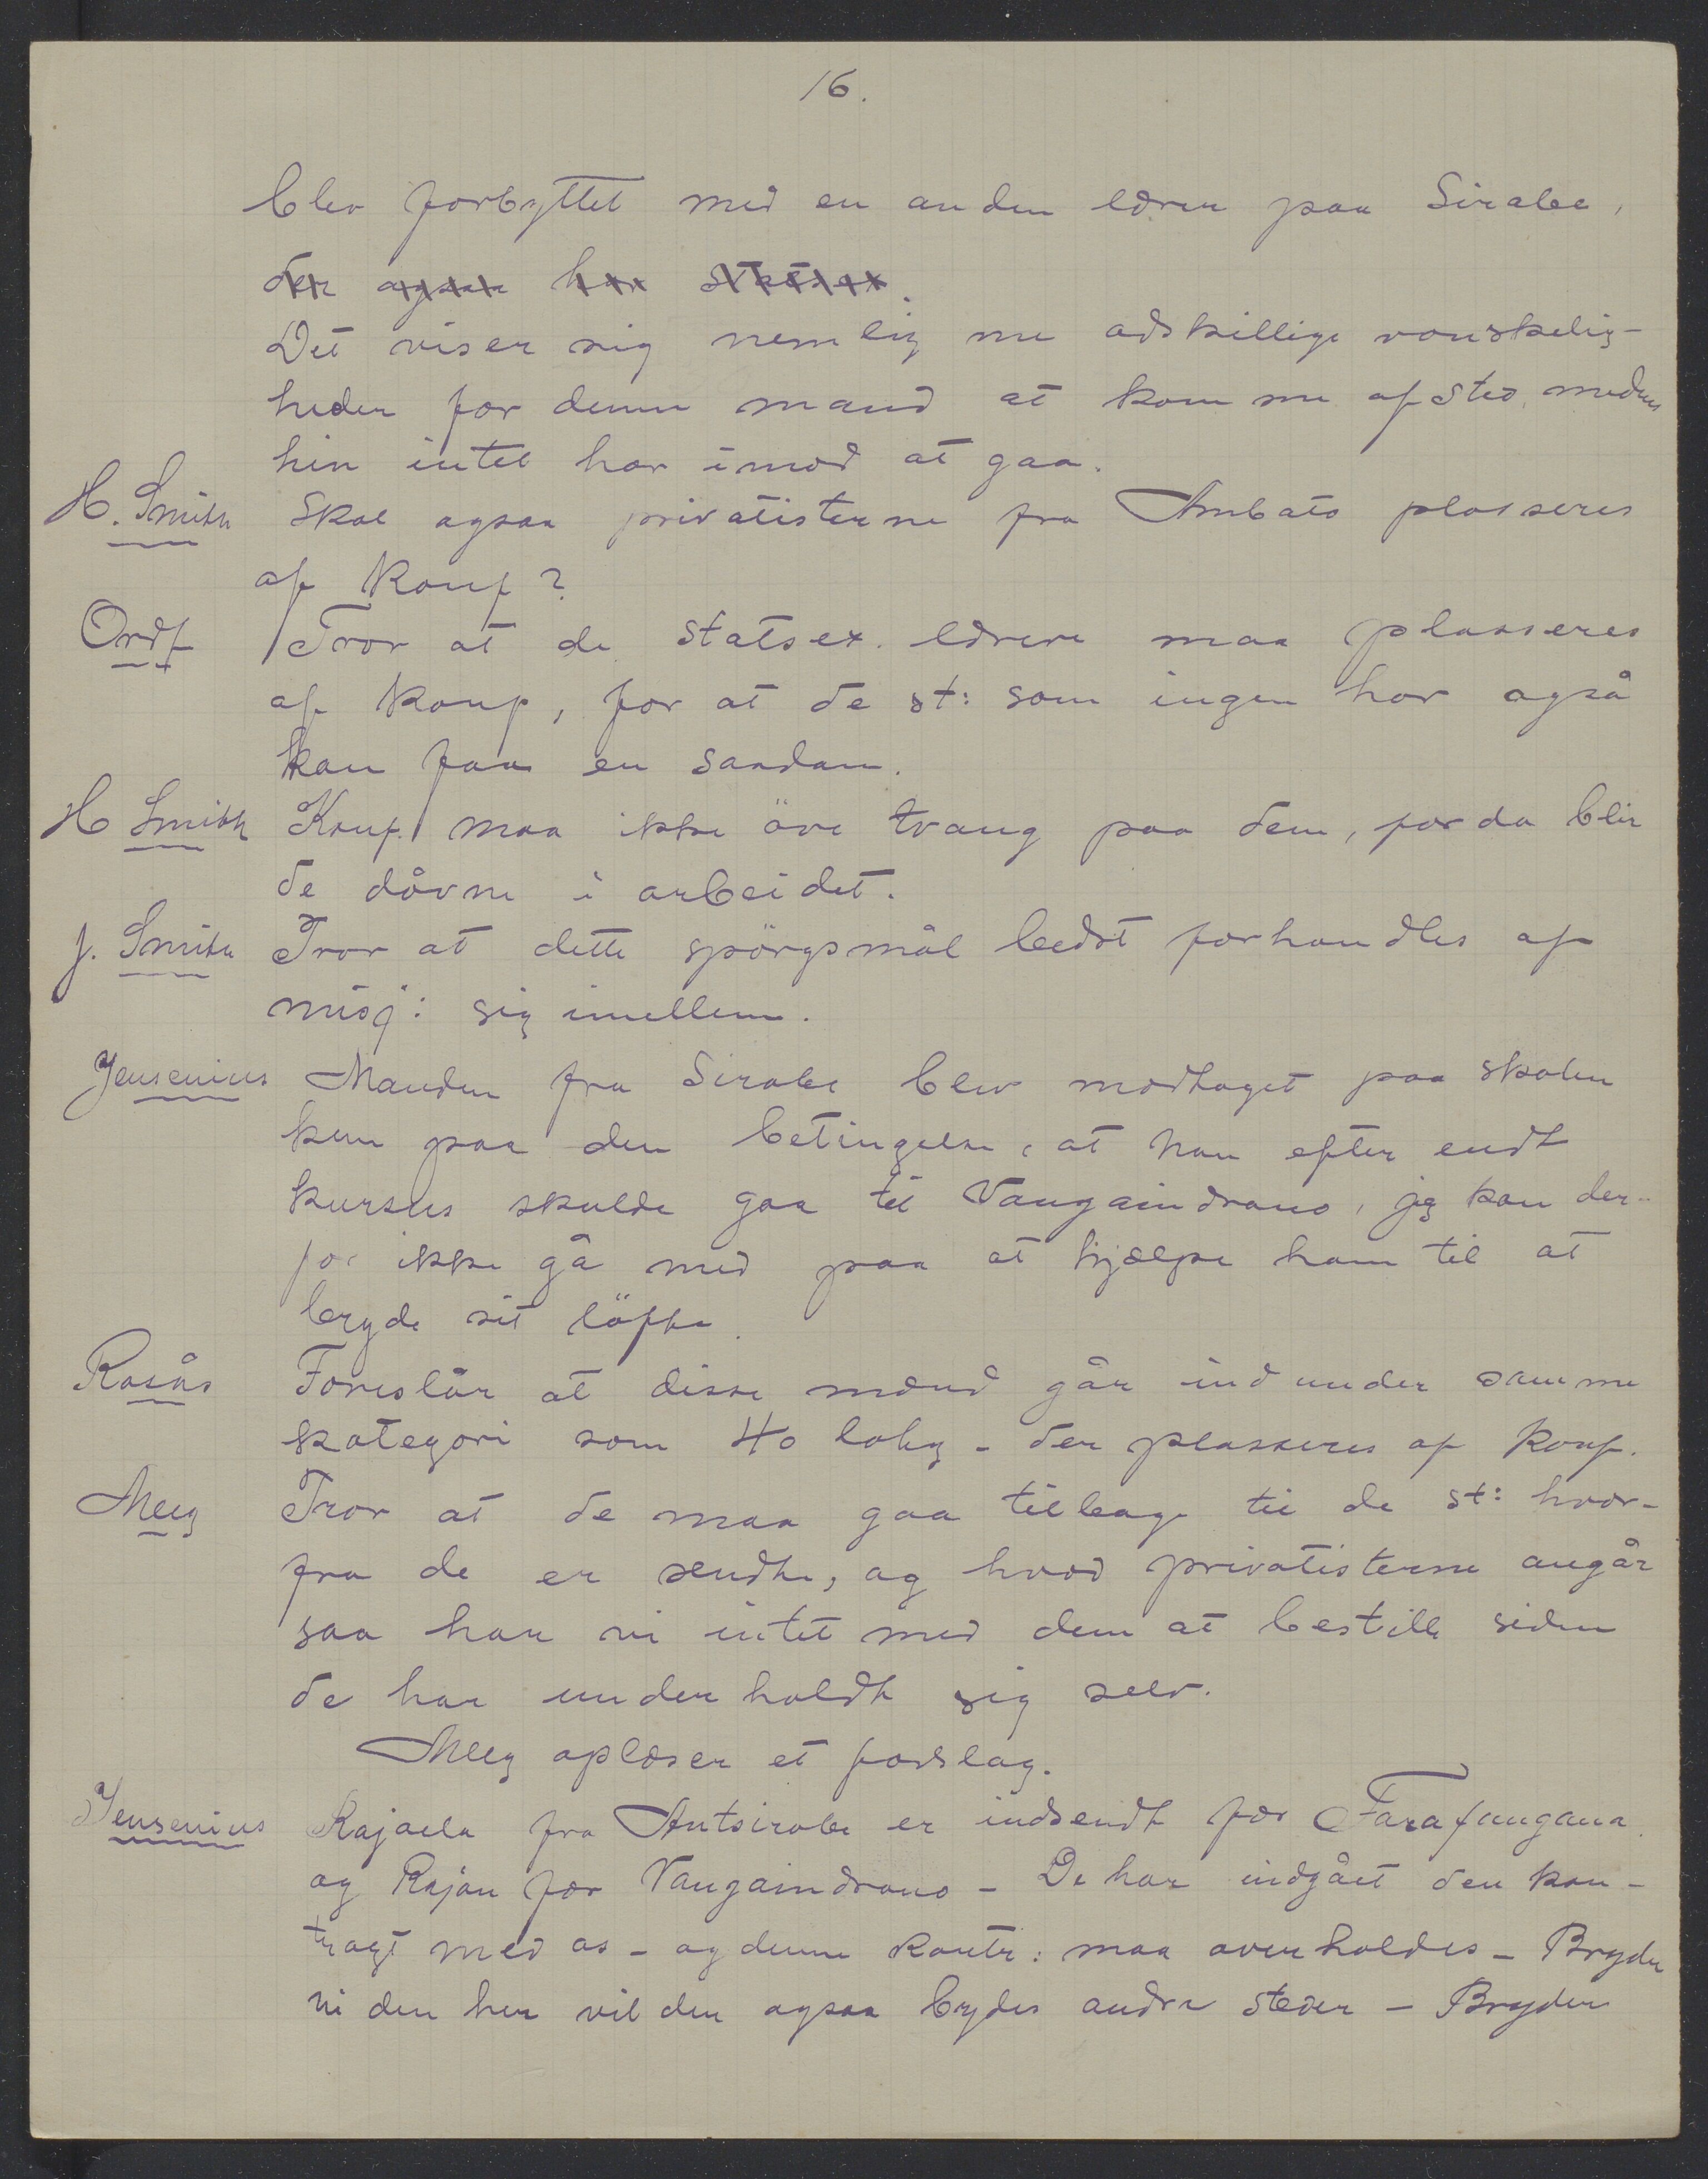 16.
blev forbyttet med en anden lærer paa Sirabe,
der ogsaa har
Det viser sig nemlig nu adskillige vanskelig-
heder for denne mand at komme afsted, medens
hin intet har imod at gaa.
H. Smith Skal ogsaa privatisterne fra Ambato plasseres
af Konf?
Ordf Tror at de statsex. lærere maa plasseres
af Konf, for at de st: som ingen har også
kan faa en saadan.
H Smith Konf. maa ikke öve tvang paa dem, for da blir
de dövne i arbeidet.
J. Smith Tror at dette spörgsmål bedst forhandles af
misj: sig imellem.
Jensenius Manden fra Sirabe blev modtaget paa skolen
kun paa den betingelse, at han efter endt
kursus skulde gaa til Vangaindrano, jeg kan der-
for ikke gå med paa at hjælpe ham til at
bryde sit löfte.
Rosås Foreslår at disse mænd går ind under samme
kategori som 4o lohg - der plasseres af Konf.
Meeg Tror at de maa gaa tilbage til de st: hvor-
fra de er sendte, og hvad privatisterne angår
saa har vi intet med dem at bestille siden
de har underholdt sig selv.
Meeg oplæser et forslag.
Jensenius Rajaela fra Antsirabe er indsendt for Farafangana
og Rajon for Vangaindrano - De har indgået den kon-
tragt med os - og denne kontr: maa overholdes - Bryder
vi den her vil den ogsaa brydes andre steder - Bryder